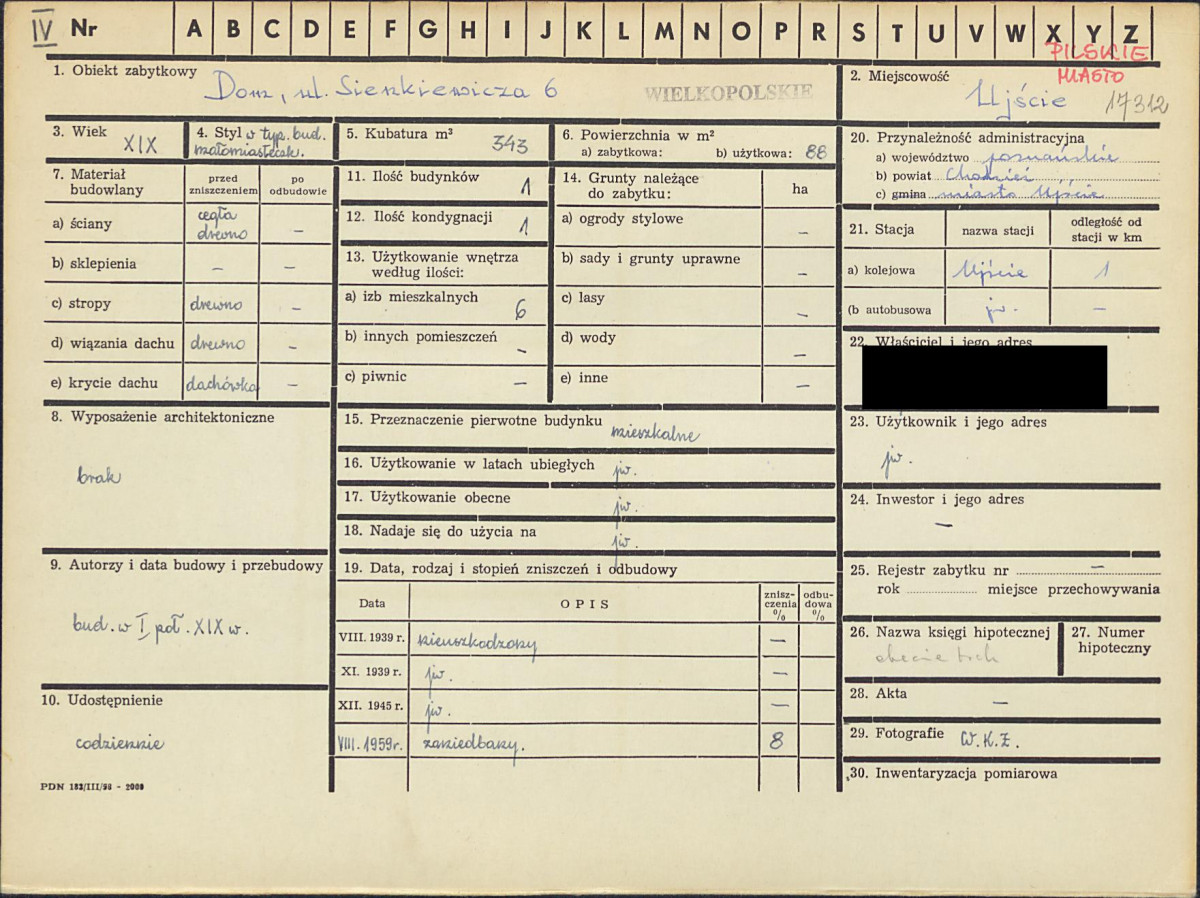 IV Nr A B C D E F G H I J K L M N O P R S T U V W X Y Z
PILSKIE
MIASTO
1. Obiekt zabytkowy Dom, ul. Sienkiewicza 6
WIELKOPOLSKIE
2. Miejscowość
Ujście 17312
3. Wiek XIX
4. Styl w typ. bud.
małomiasteczk.
5. Kubatura m³ 343
6. Powierzchnia w m²
a) zabytkowa: b) użytkowa: 88
7. Materiał budowlany
przed zniszczeniem
po odbudowie
a) ściany cegła drewno –
b) sklepienia – –
c) stropy drewno –
d) wiązania dachu drewno –
e) krycie dachu dachówka –
8. Wyposażenie architektoniczne
brak
9. Autorzy i data budowy i przebudowy
bud. w I poł. XIX w.
10. Udostępnienie
codziennie
PDN 183/III/58 - 2000
11. Ilość budynków 1
12. Ilość kondygnacji 1
13. Użytkowanie wnętrza
według ilości:
a) izb mieszkalnych 6
b) innych pomieszczeń -
c) piwnic –
14. Grunty należące
do zabytku: ha
a) ogrody stylowe –
b) sady i grunty uprawne –
c) lasy –
d) wody –
e) inne –
15. Przeznaczenie pierwotne budynku mieszkalne
16. Użytkowanie w latach ubiegłych jw.
17. Użytkowanie obecne jw.
18. Nadaje się do użycia na jw.
19. Data, rodzaj i stopień zniszczeń i odbudowy
Data OPIS znisz-czenia % odbu-dowa %
VIII. 1939 r. nieuszkodzony –
XI. 1939 r. jw. –
XII. 1945 r. jw. –
VIII. 1959 r. zaniedbany. 8
20. Przynależność administracyjna
a) województwo poznańskie
b) powiat Chodzież
c) gmina miasto Ujście
21. Stacja nazwa stacji odległość od stacji w km
a) kolejowa Ujście 1
(b autobusowa jw. –
22. Właściciel i jego adres
23. Użytkownik i jego adres
jw.
24. Inwestor i jego adres
–
25. Rejestr zabytku nr –
rok miejsce przechowywania
26. Nazwa księgi hipotecznej
27. Numer
hipoteczny
28. Akta –
29. Fotografie W.K.Z.
30. Inwentaryzacja pomiarowa